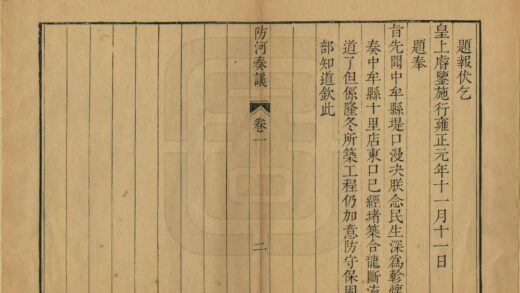 題報伏乞
皇上睿鑒施行雍正元年十一月十一日
題奉
旨先聞中牟縣堤口漫决朕念民生深爲軫懷
奏中牟縣十里店東口已經堵築合龍斷流
道了但係隆冬所築工程仍加意防守保固
部知道欽此
防河奏議
卷一
二